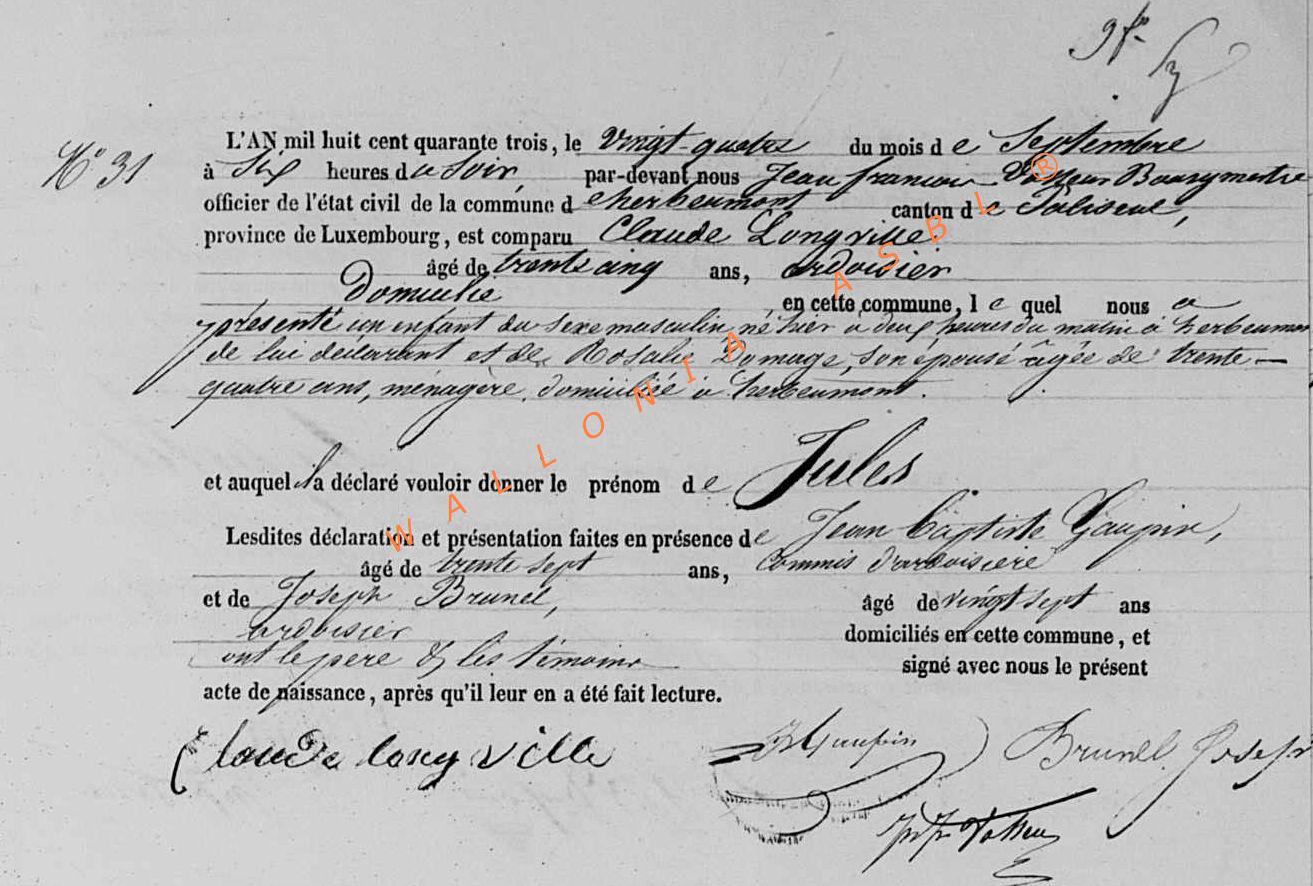 9 f.
N° 31
L'AN mil huit cent quarante trois, le vingt-quatre du mois de Septembre
à Six heures du Soir, par-devant nous Jean françois Bourgmestre
officier de l'état civil de la commune d'herbeumont canton de Paliseul,
province de Luxembourg, est comparu Claude Longville
âgé de trente cinq ans, ardoisier
Domicilié en cette commune, lequel nous a
présenté un enfant du sexe masculin né hier à deux heures du matin à herbeumont
de lui déclarant et de Rosalie Domage, son épouse âgée de trente-
quatre ans, ménagère, domiciliée à herbeumont.
et auquel il a déclaré vouloir donner le prénom de Jules
Lesdites déclaration et présentation faites en présence de Jean Baptiste Gaupin,
âgé de trente sept ans, Commis d'ardoisière
et de Joseph Brunel, âgé de vingt sept ans
ardoisier domiciliés en cette commune, et
ont le père & les témoins signé avec nous le présent
acte de naissance, après qu'il leur en a été fait lecture.
Claude longville Gaupin Brunel Joseph
WALLONIA ASBL ®